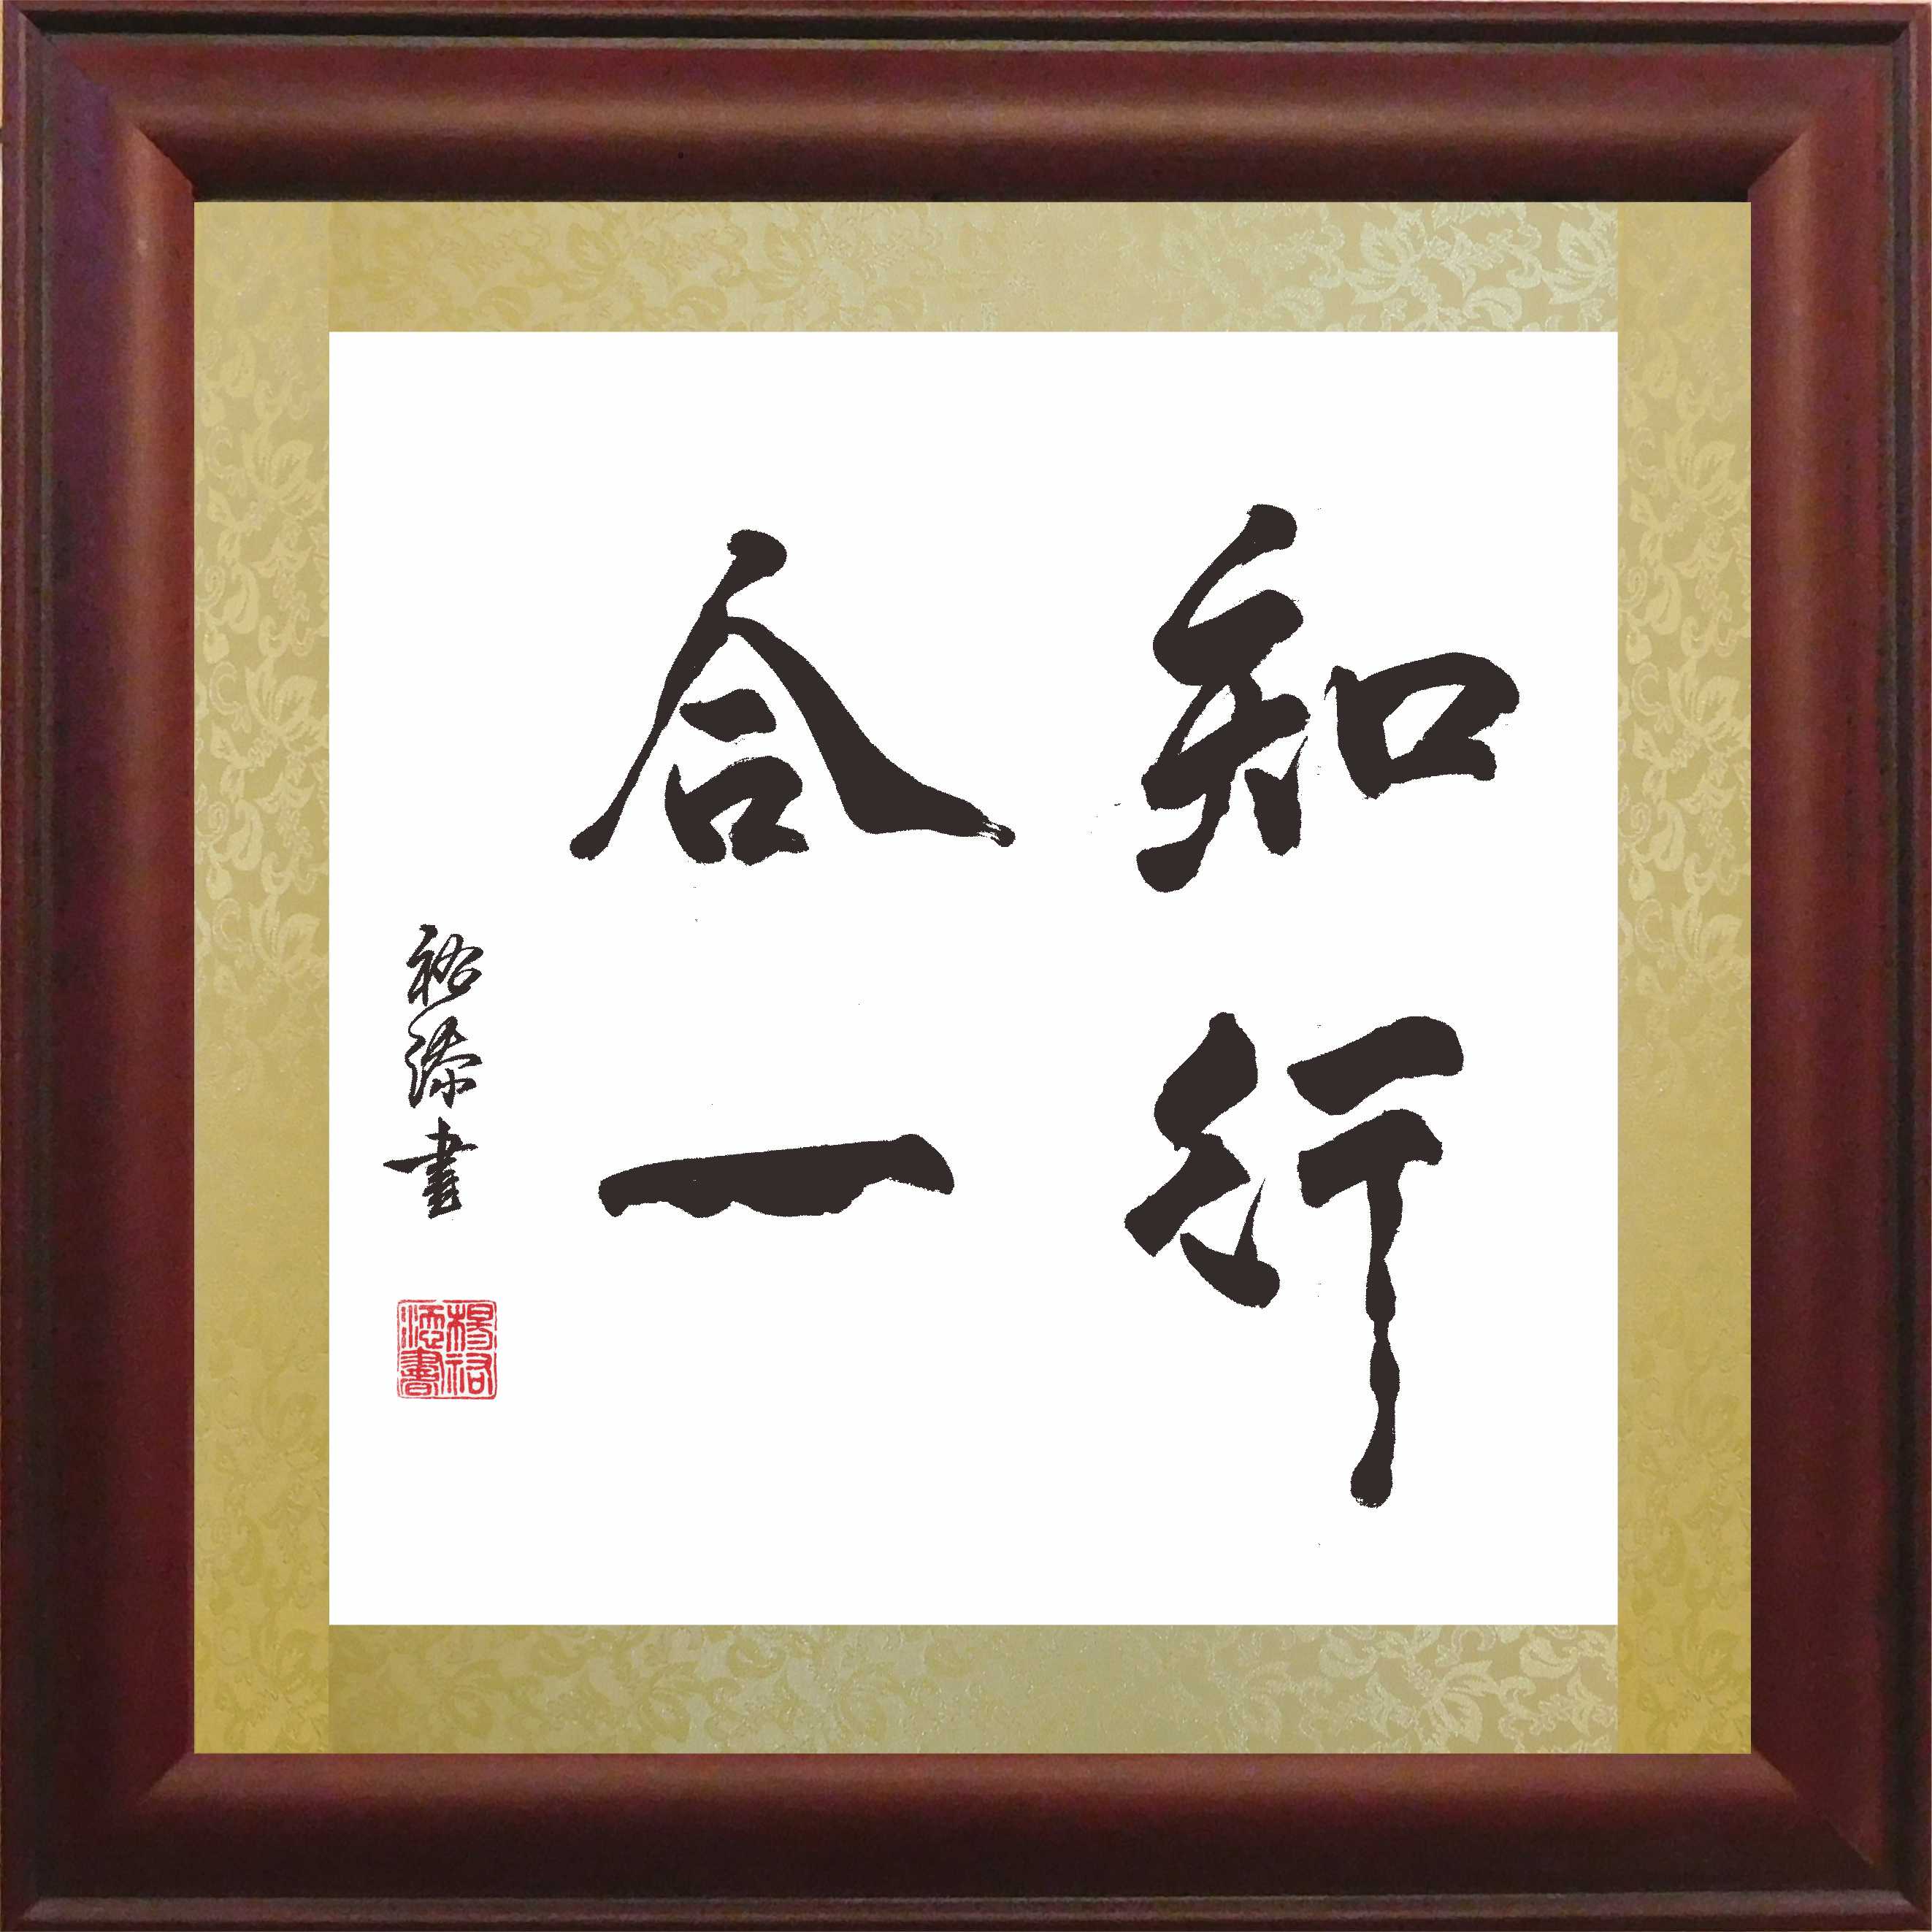 知行
合一
裕添書
楊裕
添書